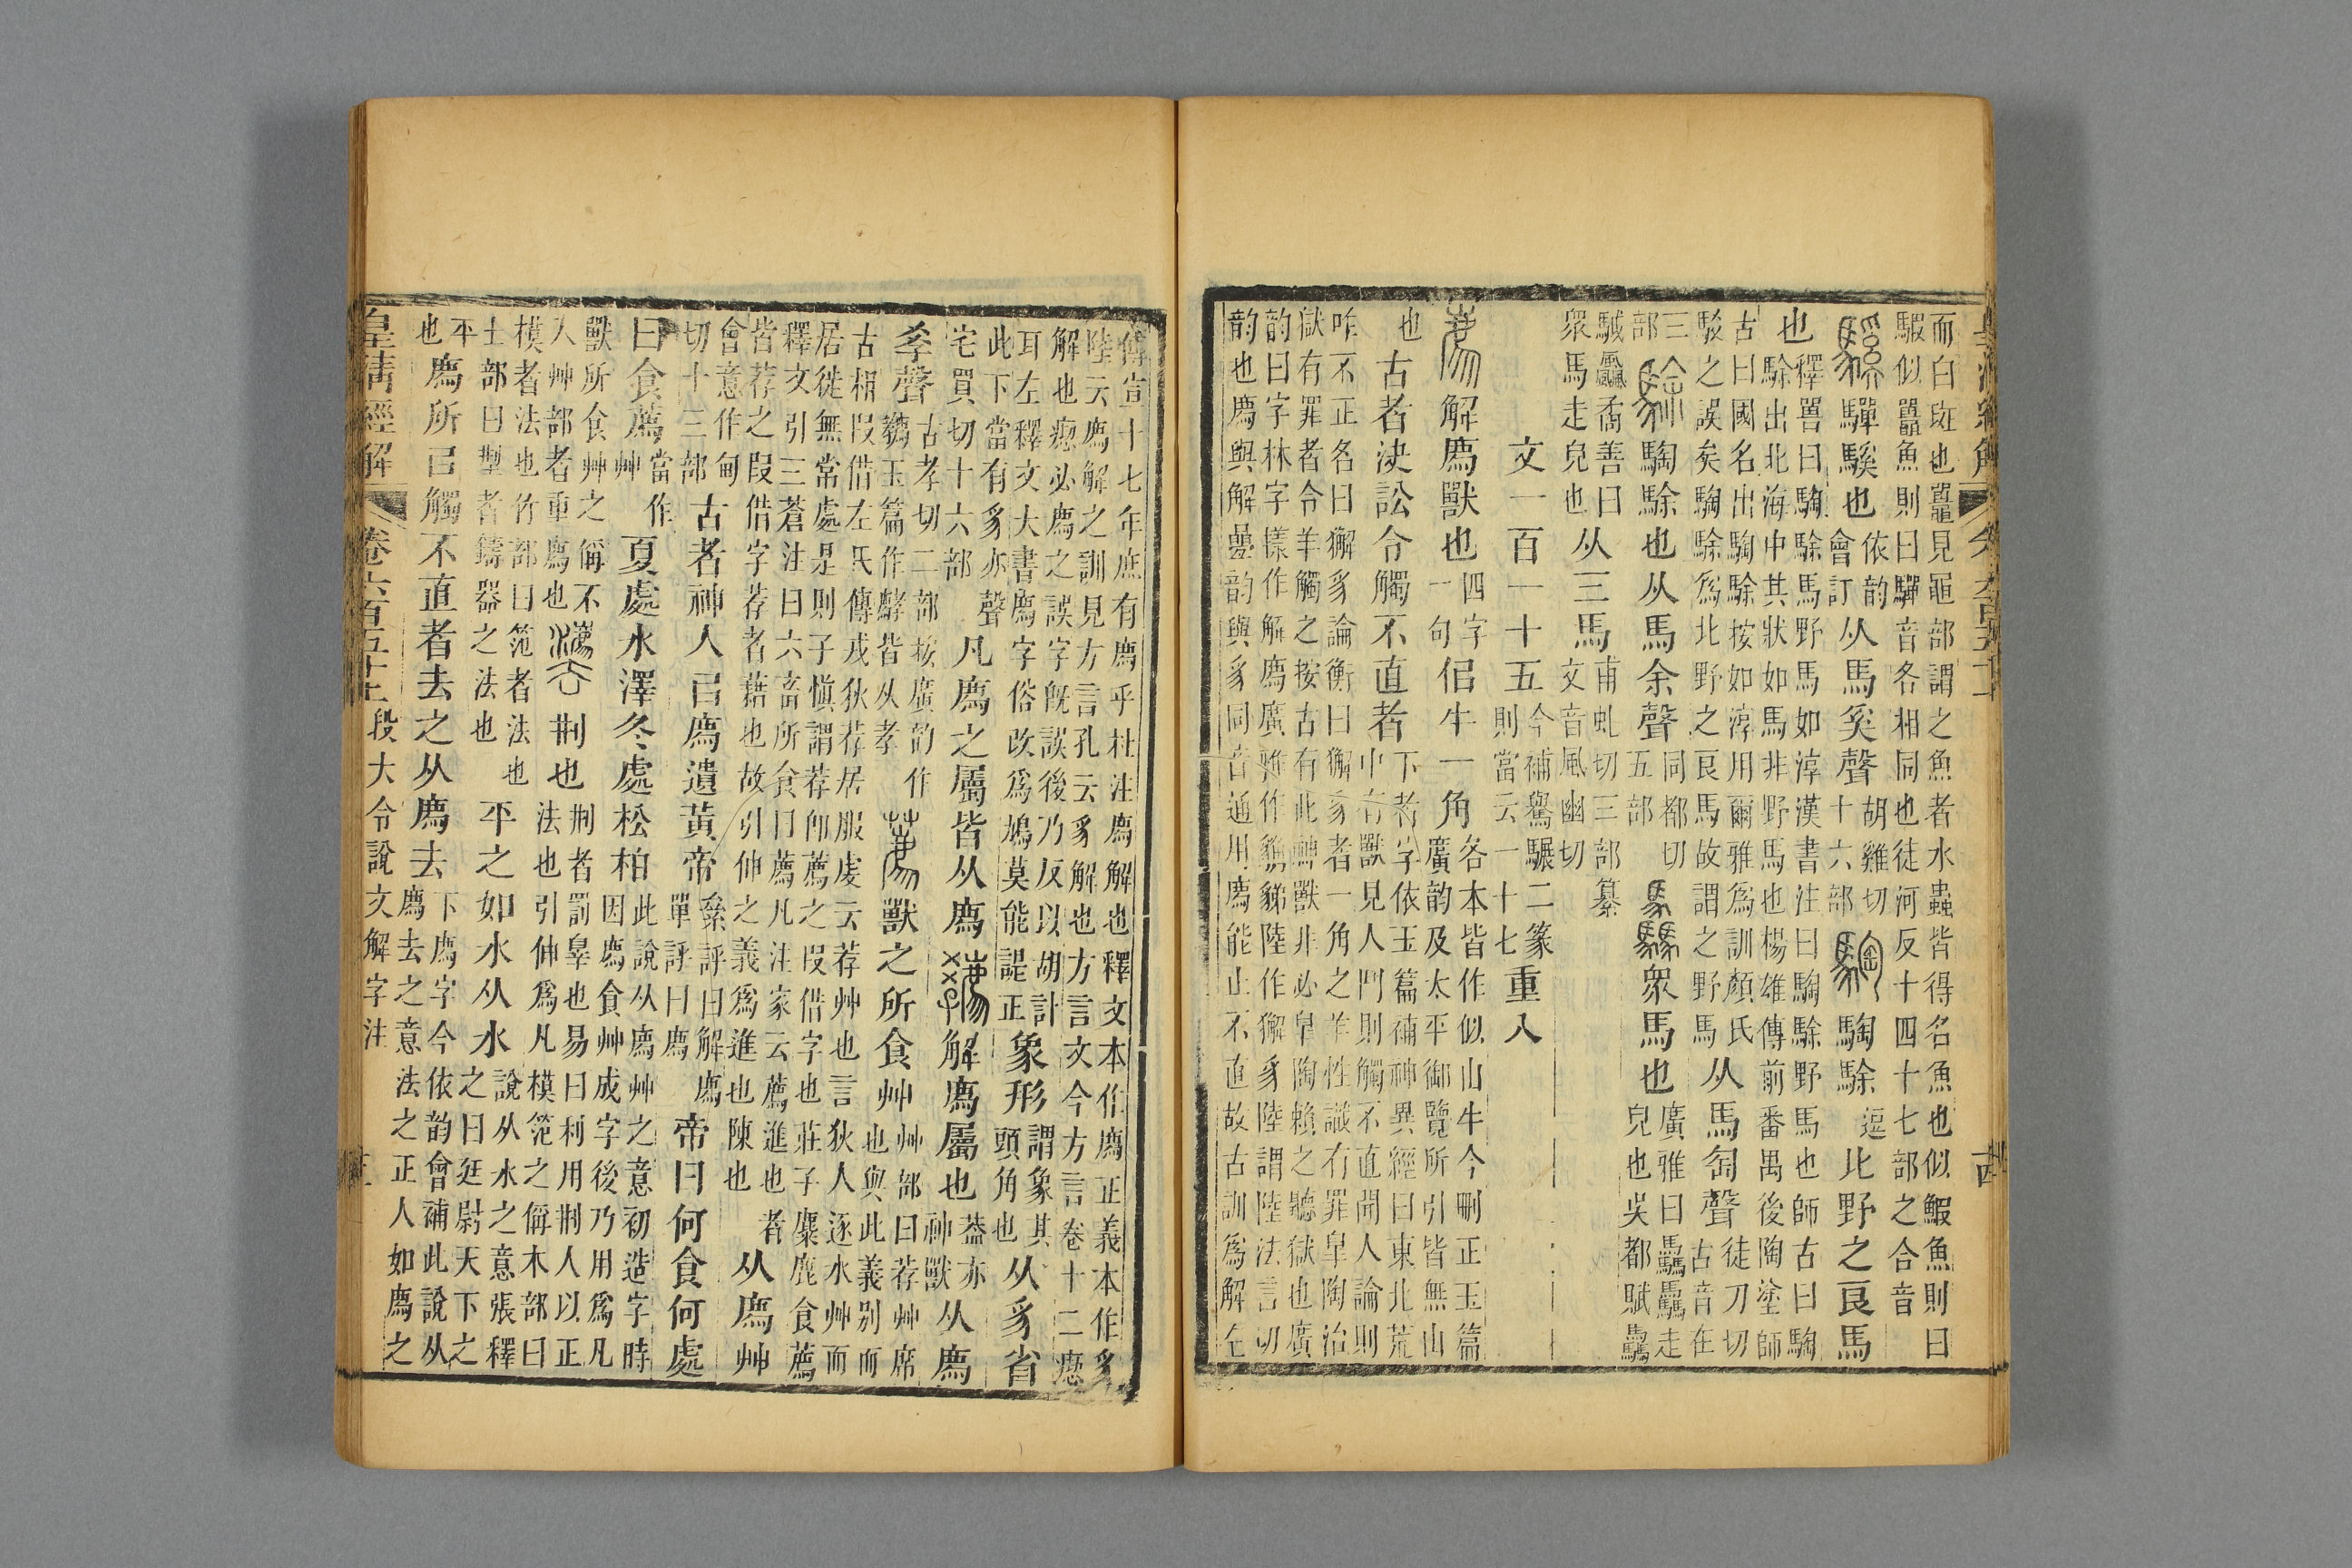 而白斑也鼉見黽部謂之魚者水蟲皆得名魚也似鰕魚則曰
騢似鼉魚則曰驒音各相同也徒河反十四十七部之合音
驒騱也依韵會訂从馬奚聲胡雞切十六部騊駼逗北野之良馬
也釋嘼曰騊駼馬野馬如淳漢書注曰騊駼野馬也師古曰騊
駼出北海中其狀如馬非野馬也楊雄傳前番禺後陶塗師
古曰國名出騊駼按如淳用爾雅爲訓顏氏
駁之誤矣騊駼爲北野之良馬故謂之野馬从馬匋聲徒刀切古音在
三部駼騊駼也从馬余聲同都切五部驫衆馬也廣雅曰驫驫走皃也吳都賦驫
駥飍矞善曰衆馬走皃也从三馬甫虬切三部篆文音風幽切
文一百一十五今補驁驏二篆則當云一十七重八
廌解廌獸也四字一句佀牛一角各本皆作似山牛今刪正玉篇廣韵及太平御覽所引皆無山
也古者決訟令觸不直者下者字依玉篇補神異經曰東北荒中有獸見人鬥則觸不直聞人論則
咋不正名曰獬豸論衡曰獬豸者一角之羊性識有罪皐陶治
獄有罪者令羊觸之按古有此神獸非必皐陶賴之聽獄也廣
韵曰字林字㨾作解廌廣雅作
陸作獬豸陸謂陸法言切
韵也廌與解曡韵與豸同音通用廌能止不直故古訓爲解左
傳宣十七年庶有廌乎杜注廌解也釋文本作廌正義本作豸
陸云廌解之訓見方言孔云豸解也方言文今方言卷十二瘛
解也瘛必廌之誤字旣誤後乃反以胡計
耳左釋文大書廌字俗改爲鳩莫能諟正象形謂象其頭角也从豸省
此下當有豸亦聲宅買切十六部凡廌之屬皆从廌
解廌屬也葢亦神獸从廌
孝聲古孝切二部按廣韵作䴫玉篇作㸹皆从孝薦獸之所食艸艸部曰荐艸席也與此義別而
古相叚借左氏傳戎狄荐居服虔云荐艸也言狄人逐水艸而
居徙無常處是則子愼謂荐卽薦之叚借字也莊子麋鹿食薦
釋文引三蒼注曰六畜所食曰薦凡注家云薦進也者
皆荐之叚借字荐者藉也故引伸之義爲進也陳也从廌艸
會意作甸切十三部古者神人㠯廌遺黃帝絫評曰解廌單評曰廌帝曰何食何處
曰食薦當作艸夏處水澤冬處松柏此說从廌艸之意初造字時因廌食艸成字後乃用爲凡
獸所食艸之偁不入艸部者重廌也灋荆也荆者罰辠也易曰利用荆人以正法也引伸爲凡模笵之偁木部曰
模者法也竹部曰笵者法也土部曰型者鑄器之法也平之如水从水說从水之意張釋之曰廷尉天下之
平也廌所㠯觸不直者去之从廌去下廌字今依韵會補此說从廌去之意法之正人如廌之
皇清經解
卷六百五十
段大令說文解字注